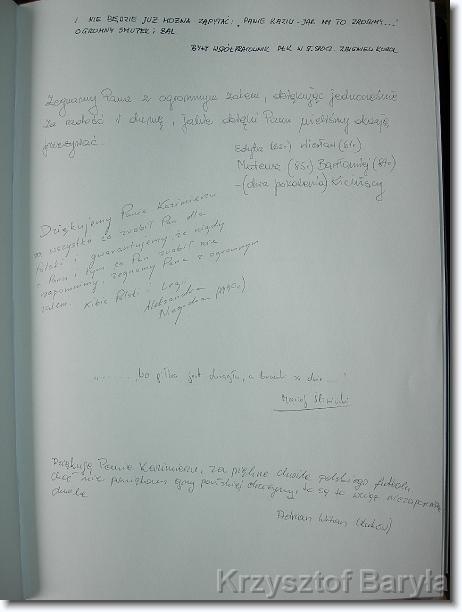 I NIE BĘDZIE JUŻ MOŻNA ZAPYTAĆ: "PANIE KAZIU - JAK MY TO ZROBIMY...?"
OGROMNY SMUTEK I ŻAL
BYŁY WSPÓŁPRACOWNIK ZBIGNIEW KOROL
Żegnamy Pana z ogromnym żalem, dziękując jednocześnie
za radość i dumę, jakie dzięki Panu mieliśmy okazję
przeżywać.
Edyta (62r.) Wiesław (61r.)
Mateusz (85r) Bartłomiej (87r)
- (dwa pokolenia) Kichnięscy
Dziękujemy Panie Kazimierzu
za wszystko co zrobił Pan dla
Polski i gwarantujemy że nigdy
o Panu i tym co Pan zrobił nie
zapomnimy, żegnamy Pana z ogromnym
żalem. Kibic Polski i Legii
Aleksandra
(1990r)
"........, bo piłka jest okrągła, a bramki są dwie...."
Maciej Śliwiński
Dziękuję Panie Kazimierzu, za piękne chwile polskiego futbolu,
choć nie pamiętam gry pańskiej drużyny, to są to wciąż niezapomniane
chwile
Adrian Witan (Łuków)
Krzysztof Baryła